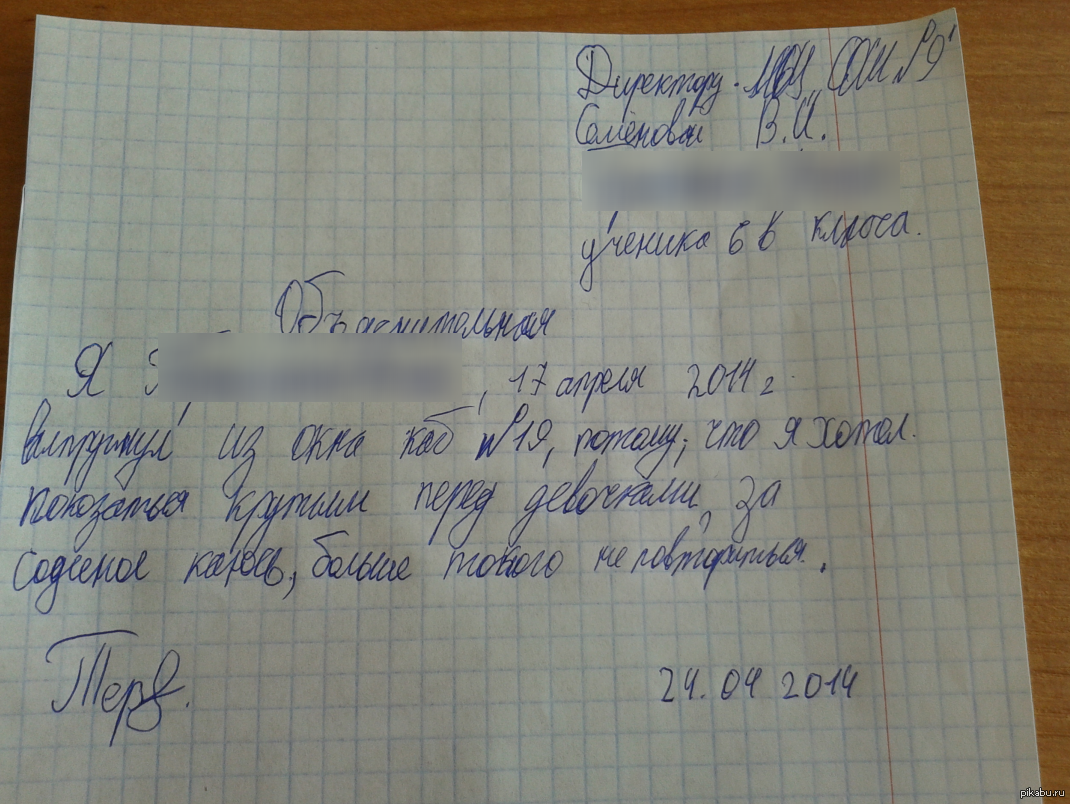 Директору МОУ СОШ №9
Семёновой В.И.
ученика 6 в класса.
Объяснительная
Я , 17 апреля 2014 г.
выпрыгнул из окна каб №19, потому, что я хотел.
показаться крутым перед девочками, за
содеяное каюсь, больше такого не повториться.
24.04 2014
pikabu.ru